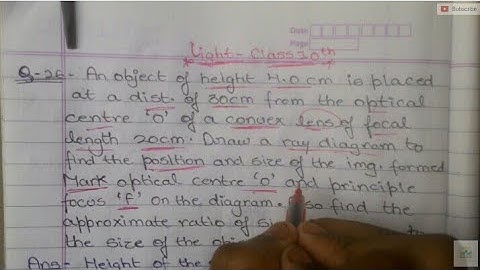 Subscribe
Date
Page
Light - Class 10th
Q-26- An object of height 4.0cm is placed
at a dist. of 30cm from the optical
centre 'O' of a convex lens of focal
length 20cm. Draw a ray diagram to
find the position and size of the img. formed
Mark optical centre 'O' and principle
focus 'F' on the diagram. Also find the
approximate ratio of si
the size of the obj
Ans- Height of the